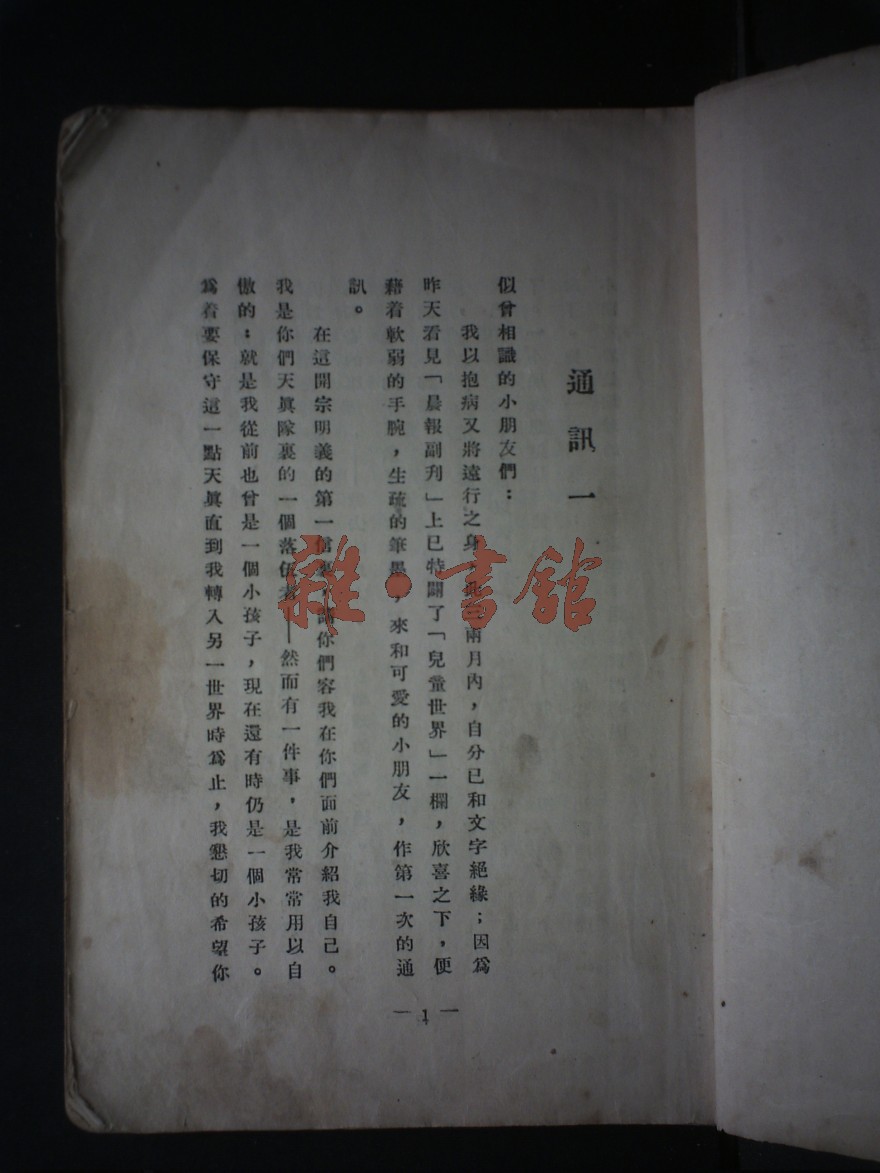 通訊一
似曾相識的小朋友們：
我以抱病又將遠行之身，此兩月內，自分已和文字絕緣；因爲
昨天看見「晨報副刋」上已特闢了「兒童世界」一欄，欣喜之下，便
藉着軟弱的手腕，生疏的筆墨，來和可愛的小朋友，作第一次的通
訊。
在這開宗明義的第一信裏，請你們容我在你們面前介紹我自己。
我是你們天眞隊裏的一個落伍者——然而有一件事，是我常常用以自
傲的：就是我從前也曾是一個小孩子，現在還有時仍是一個小孩子。
爲着要保守這一點天眞直到我轉入另一世界時爲止，我懇切的希望你
— 1 —
雜·書館